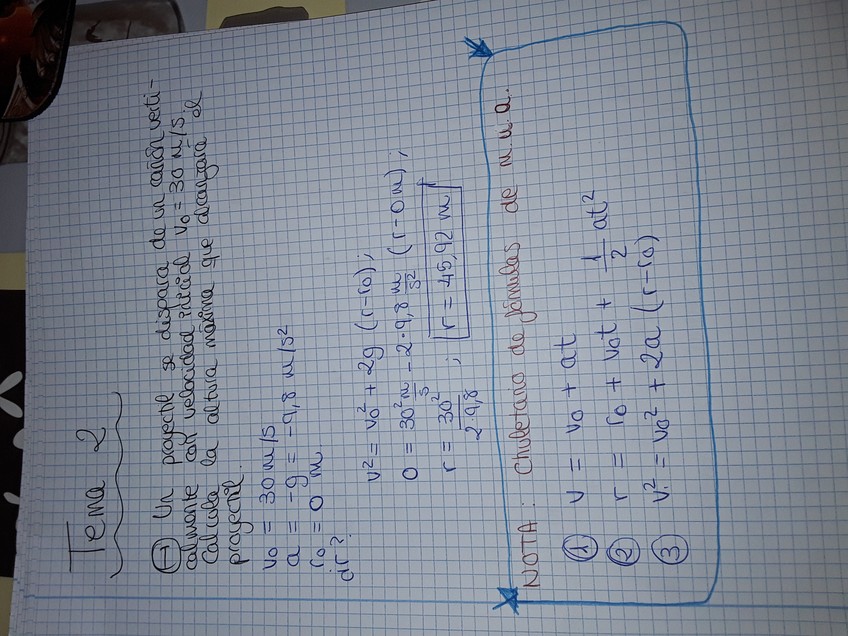 Tema 2
① Un proyectil se dispara de un cañón verti-
calmente con velocidad inicial v₀ = 30 m/s.
Calcula la altura máxima que alcanzará el
proyectil.
v₀ = 30 m/s
a = -g = -9,8 m/s²
r₀ = 0 m.
¿r?
v² = v₀² + 2g (r-r₀);
0 = 30² m/s - 2·9,8 m/s² (r-0m);
r = 30²/2·9,8 ; r = 45,92 m
NOTA: Chuletario de fórmulas de m.u.a.
① v = v₀ + at
② r = r₀ + v₀t + 1/2 at²
③ v² = v₀² + 2a (r-r₀)